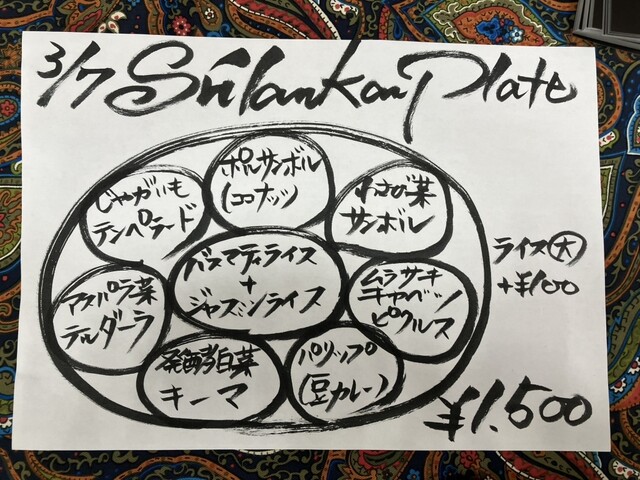 3/7 Srilankan Plate
ポルサンボル
(ココナッツ)
じゃがいも
テンペラード
わさび菜
サンボル
バスマティライス
+
ジャスミンライス
ライス大
+¥100
アスパラ菜
テルダーラ
ムラサキ
キャベツ
ピクルス
発酵白菜
キーマ
パリップ
(豆カレー)
¥1,500